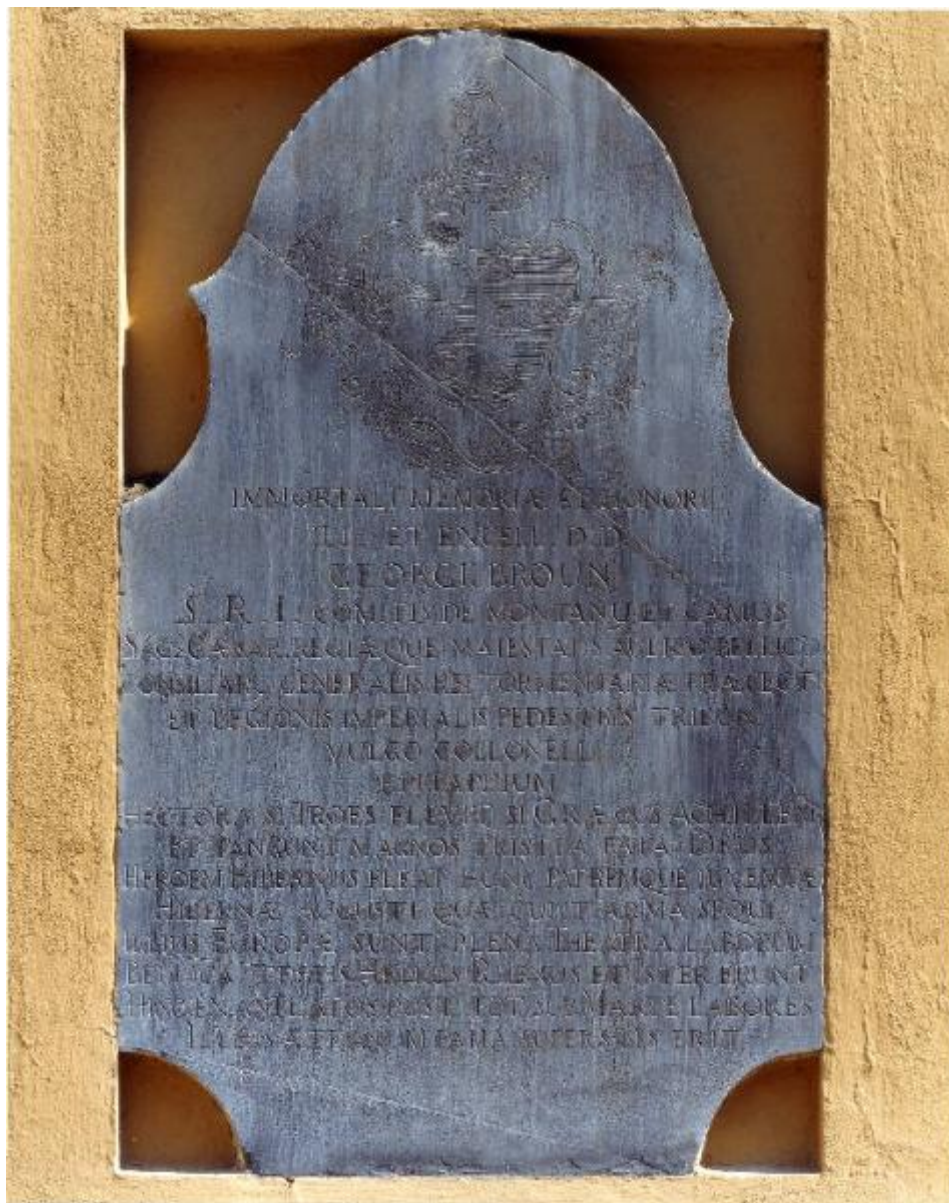 IMMORTALI MEMORIÆ ET HONORI
ILL. ET EXCELL. D.D.
GEORGI BROUN
S. R. I. COMITIS DE MONTANY ET CAMUS
SAC. CÆSAR. REGIÆQUE MAIESTATIS AULICO BELLICI
CONSILIARII GENERALIS REI TORMENTARIÆ PRÆFECTI
ET LEGIONIS IMPERIALIS PEDESTRIS TRIBUNI
VULGO COLLONELLI
EPITAPHIUM
HECTORA SI TROES FLEVIT SI GRÆCUS ACHILLEM
ET MAGNOS TRISTIA FATA
HEROEM HIBERNUS FLEAT HUNC PATREMQUE IUVENTÆ
HIBERNÆ AUGUSTI QUÆ CUPIT ARMA SEQUI
EUROPÆ SUNT PLENA THEATRA LABORUM
BELGICA ET ISTER ERUNT
POST TOT SUB MARTE LABORES
FAMA SUPERSTES ERIT